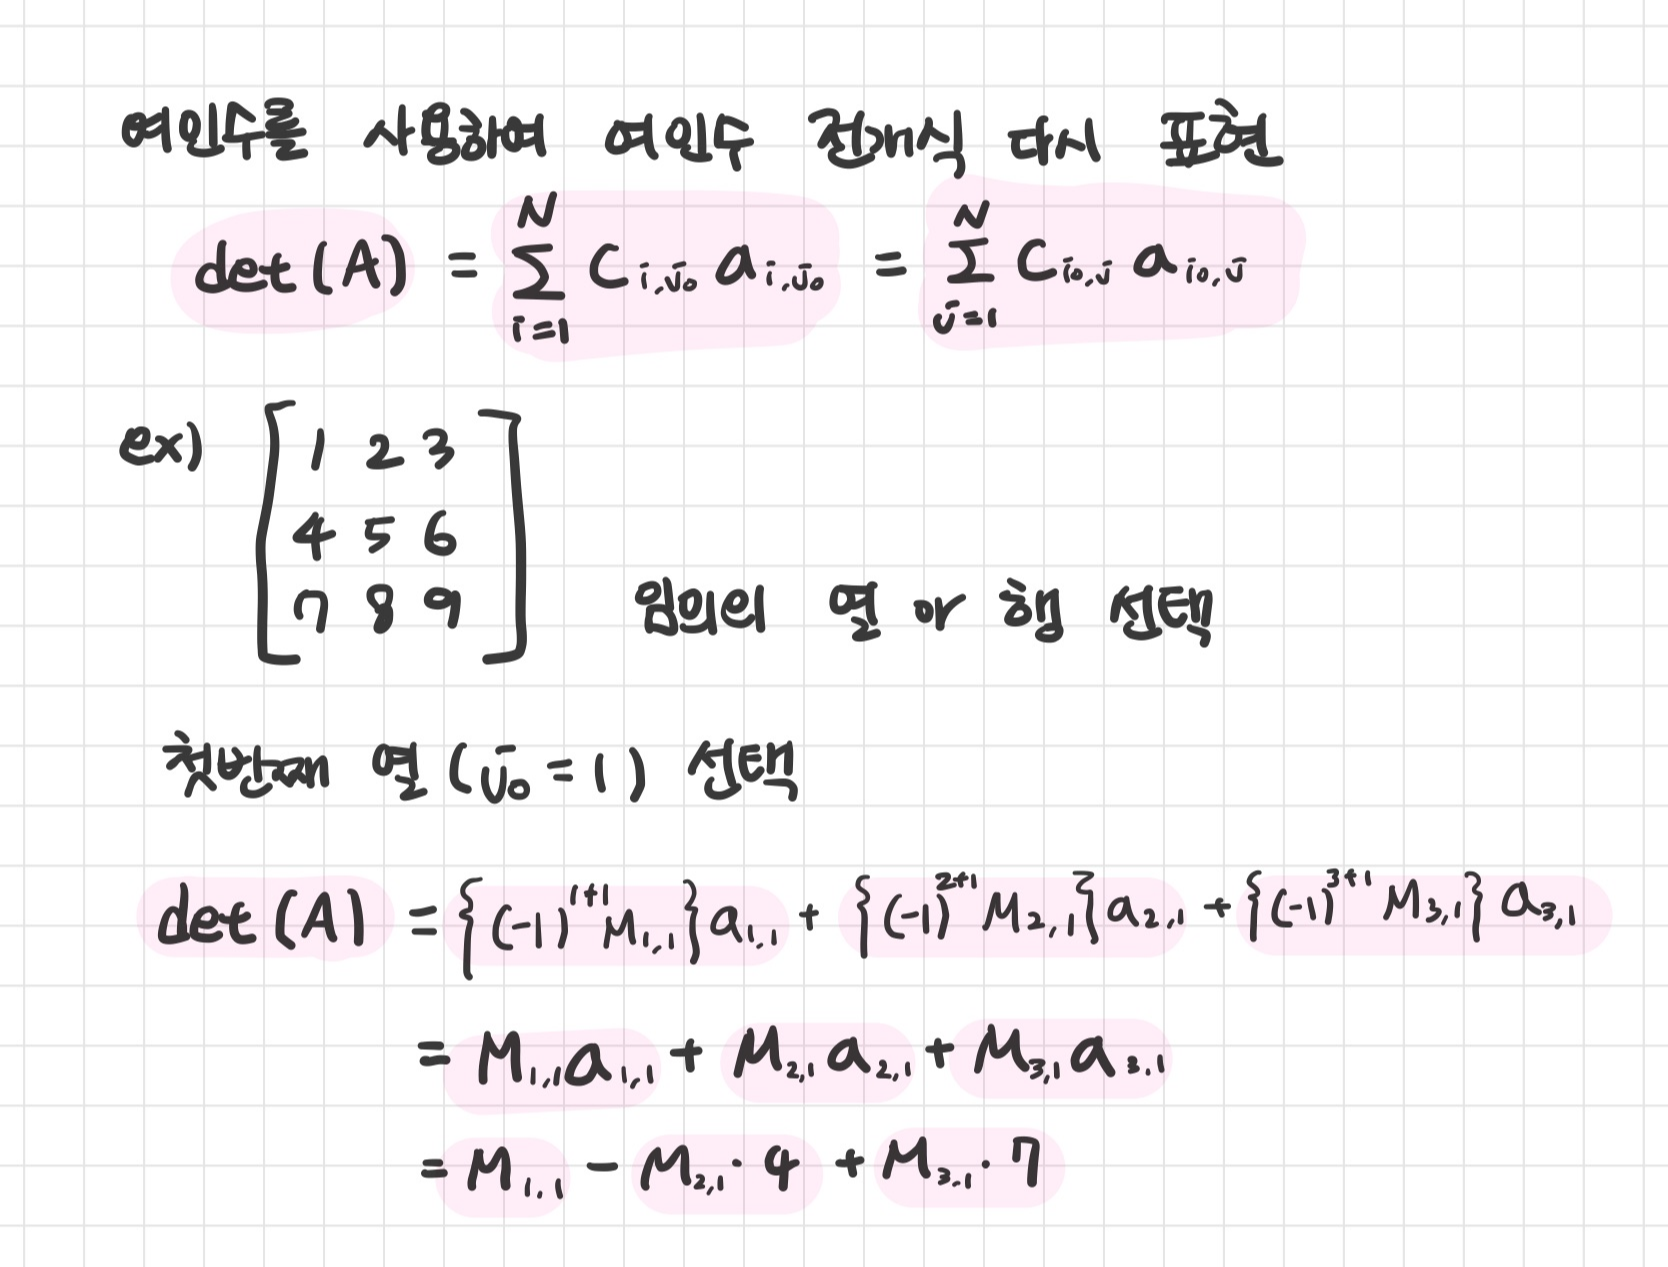 여인수를 사용하여 여인수 전개식 다시 표현
det(A) = ∑_{i=1}^{N} C_{i,j₀} a_{i,j₀} = ∑_{j=1}^{N} C_{i₀,j} a_{i₀,j}
ex) [1 2 3
4 5 6
7 8 9] 임의의 열 or 행 선택
첫번째 열 (j₀ = 1) 선택
det(A) = {(-1)^{1+1} M_{1,1}} a_{1,1} + {(-1)^{2+1} M_{2,1}} a_{2,1} + {(-1)^{3+1} M_{3,1}} a_{3,1}
= M_{1,1} a_{1,1} + M_{2,1} a_{2,1} + M_{3,1} a_{3,1}
= M_{1,1} - M_{2,1} · 4 + M_{3,1} · 7